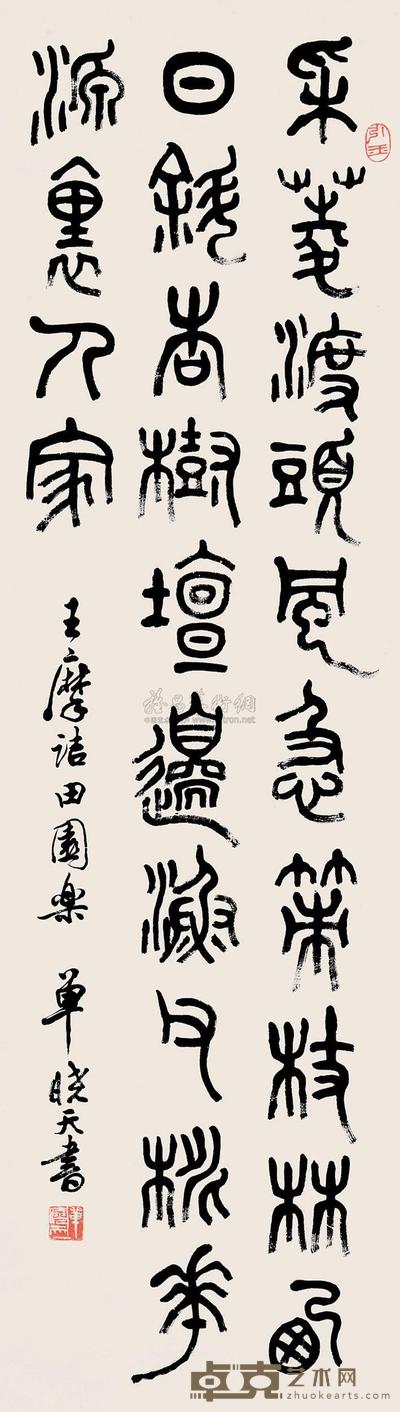 采菱渡頭風急策杖林西
日斜杏樹壇邊漁父桃華
源裏人家
王摩詰田園樂 單曉天書
卓克艺术网
zhuokearts.com